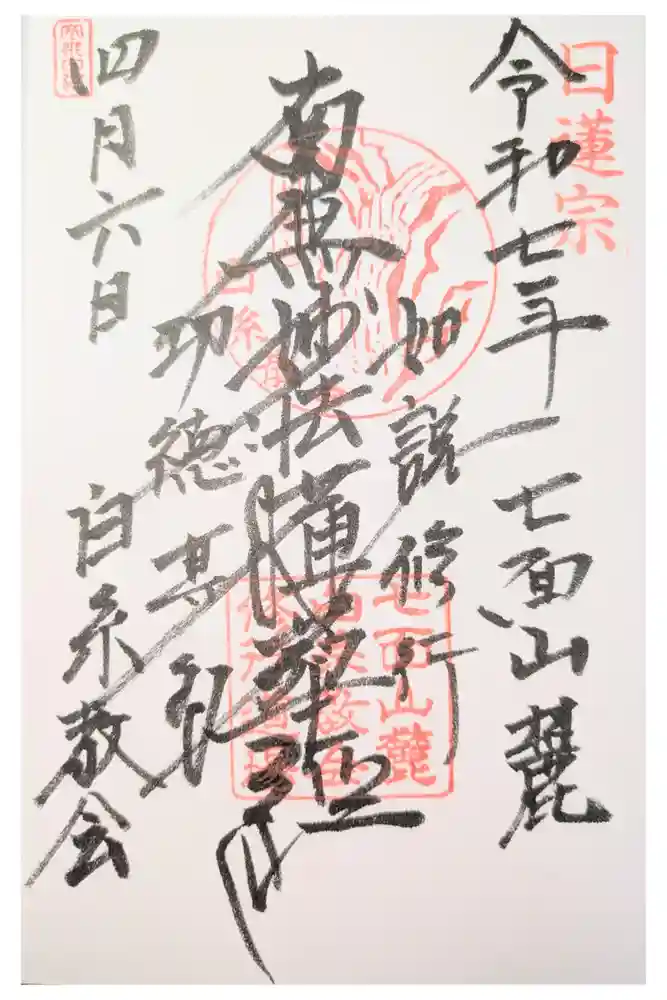 日蓮宗
令和七年
七面山麓
如説修行
南無妙法蓮華経
功徳甚
四月六日
白糸教会
七面山麓